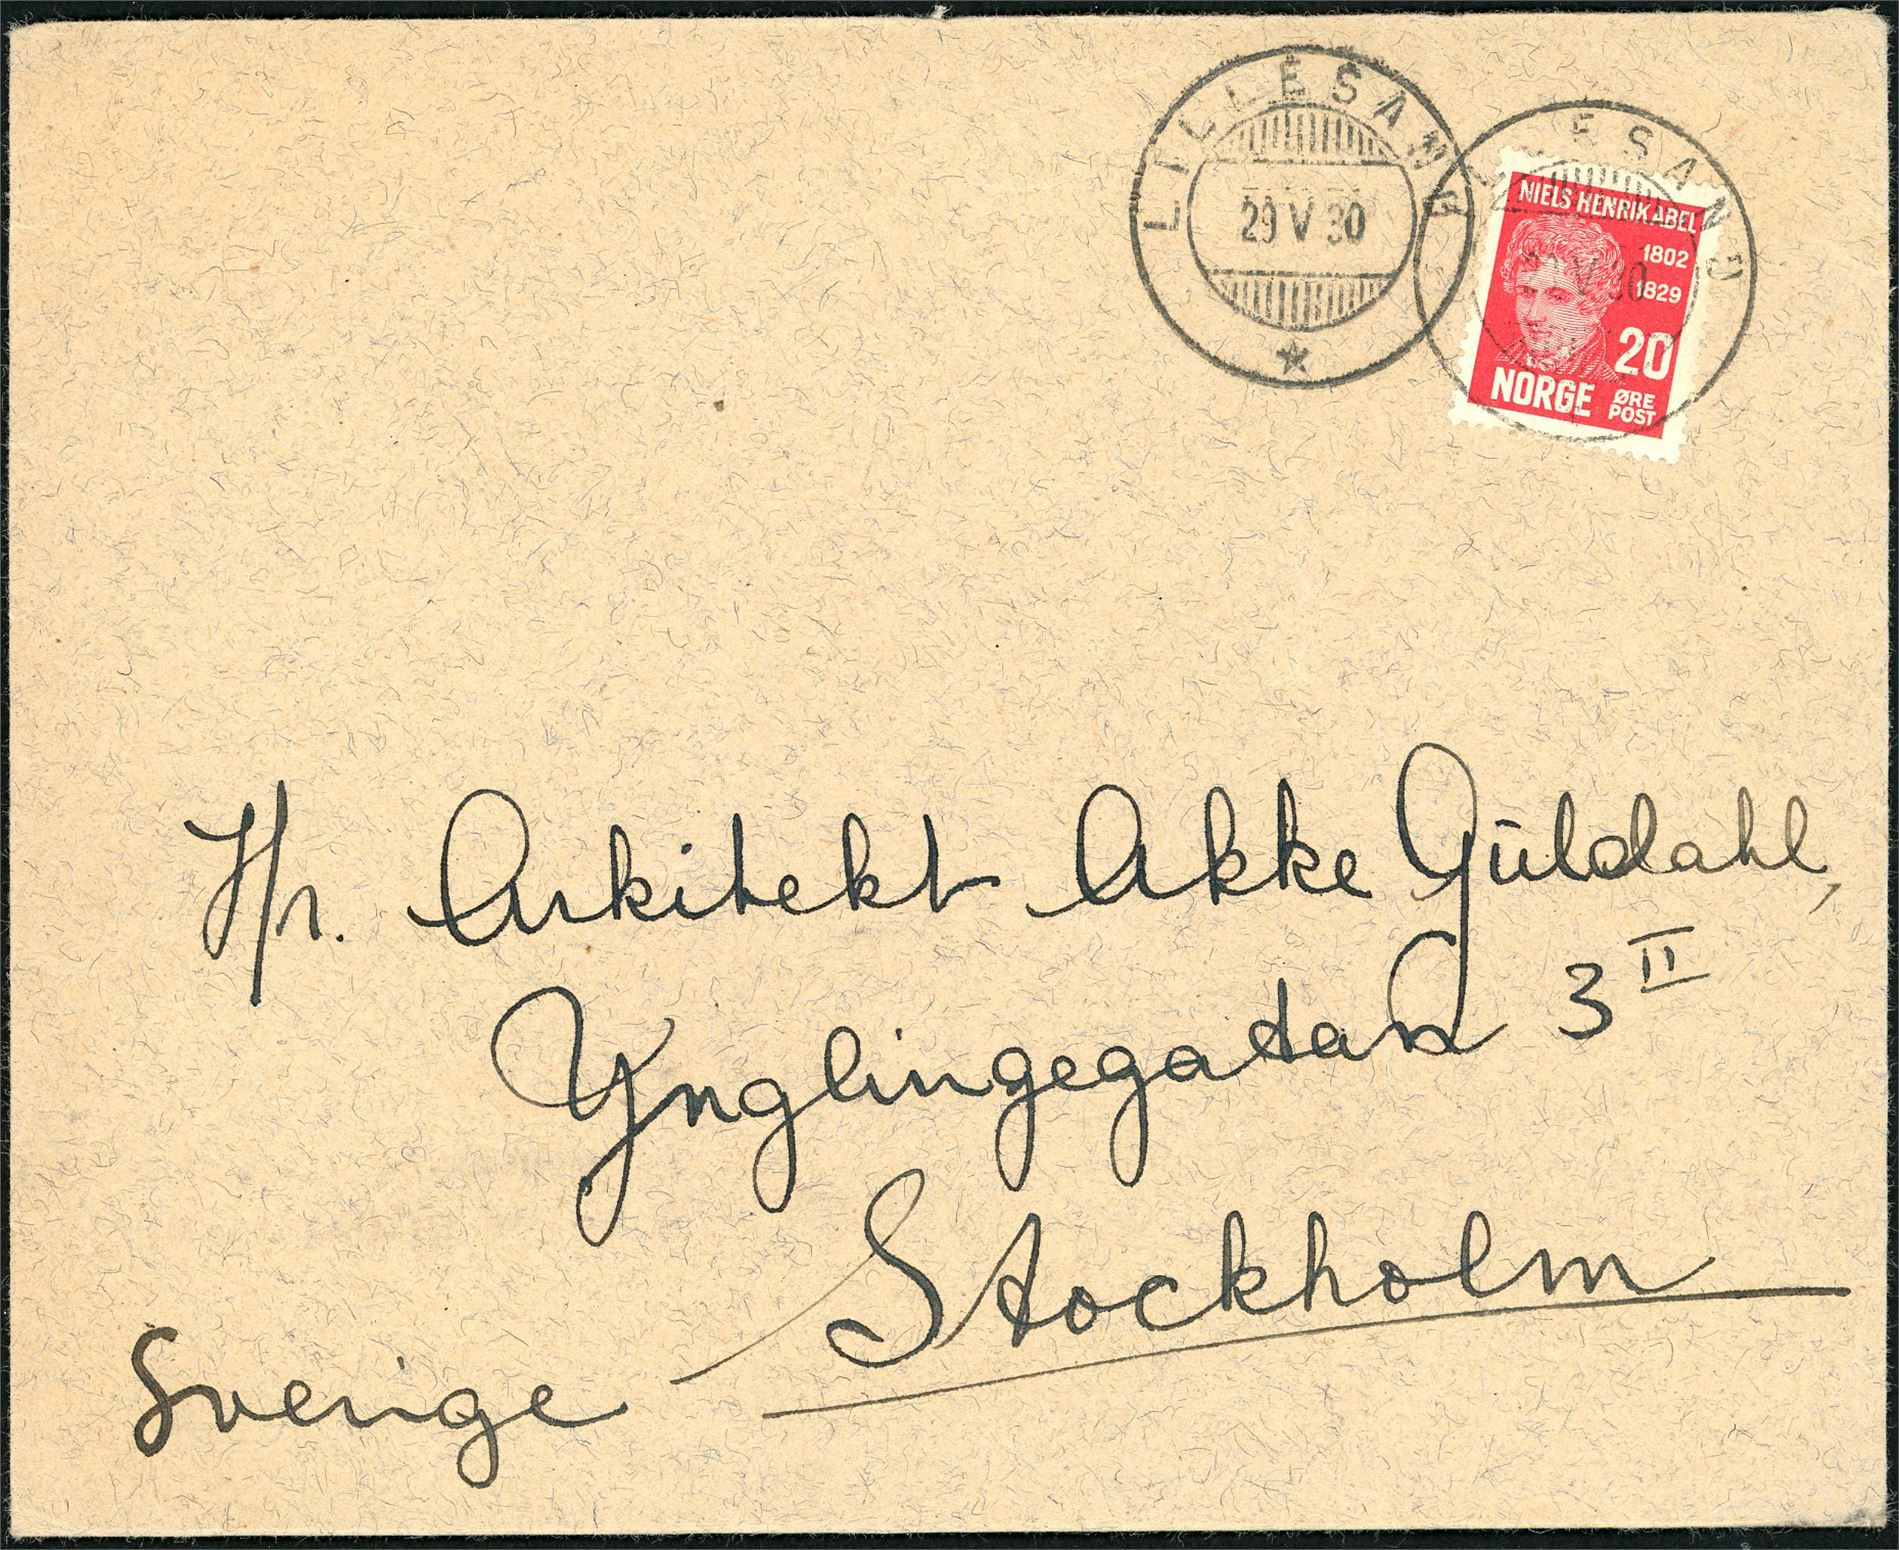 LILLESAND
29 V 30
LILLESAND
V 30
NIELS HENRIK ABEL
1802
1829
20
NORGE ØRE
POST
Hr. Arkitekt Akke Gūldahl,
Ynglingegatan 3 II
Stockholm
Sverige